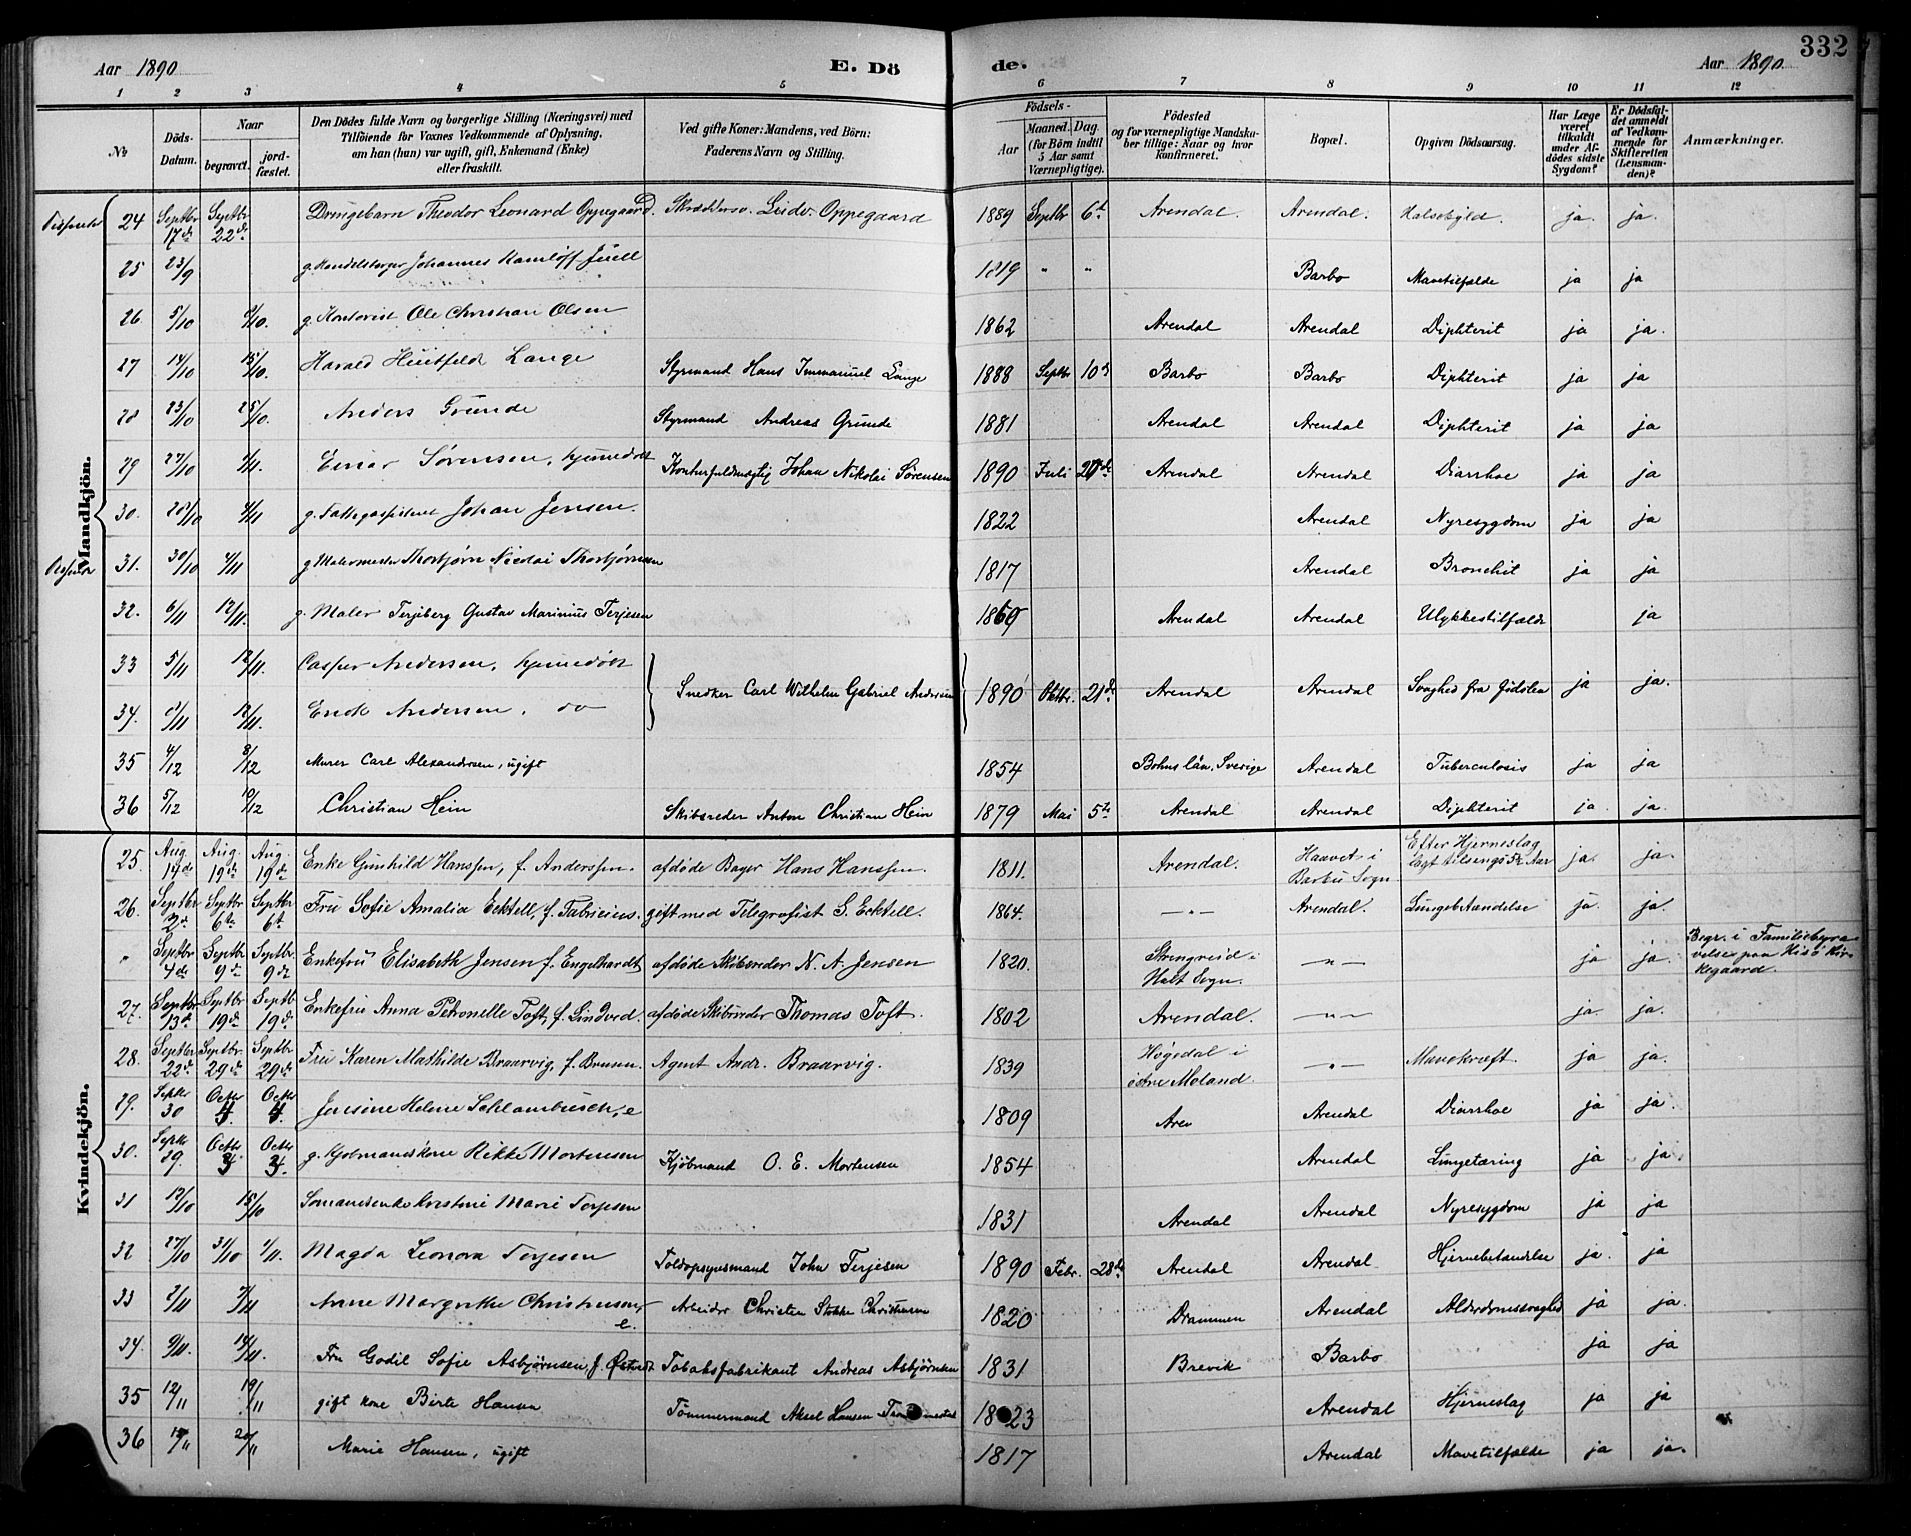 Aar 1890
E. Dö
de.
Aar 1890
332
1 2 3 4 5 6 7 8 9 10 11 12
№
Döds-
Datum.
Naar
begravet.
jord-
fæstet.
Den Dödes fulde Navn og borgerlige Stilling (Næringsvei) med
Tilföiende for Voxnes Vedkommende af Oplysning,
om han (hun) var ugift, gift, Enkemand (Enke)
eller fraskilt.
Ved gifte Koner: Mandens, ved Börn:
Faderens Navn og Stilling.
Födsels-
Aar
Maaned. Dag
(for Börn indtil
5 Aar samt
Værnepligtige).
Födested
og for værnepligtige Mandska-
ber tillige: Naar og hvor
konfirmeret.
Bopæl.
Opgiven Dödsaarsag.
Har Læge
været
tilkaldt
under Af-
dödes sidste
Sygdom?
Er Dödsfal-
det anmeldt
af Vedkom-
mende for
Skifteretten
(Lensman-
den)?
Anmærkninger.
Mandkjön.
24 Septbr 17de Septbr 22de Drengebarn Theodor Leonard Oppegaard. Ludv. Oppegaard 1889 Septbr 6te Arendal. Arendal. ja. ja.
25 23/9 g. Handelsborger Johannes Juell 1819 " " Barbo Mavetilfælde ja ja
26. 5/10 g. Kontorist Ole Christian Olsen 1862 Arendal Arendal Diphterit ja ja.
27 14/10 Harald Huitfeldt Lange Styrmand Hans Immanuel Lange 1888 Septbr 10 Barbo Barbo Diphterit ja ja
28 23/10 25/10. Anders Grunde Styrmand Andreas Grunde 1881 Arendal Arendal Diphterit ja ja
29 27/10 Einar Sørensen, hjemmedøbt Kontorfuldmægtig Johan Nikolai Sørensen 1890 Juli Arendal Arendal Diarrhoe ja ja
30. 4/11 g. Johan Jensen. 1822 Arendal Nyresygdom ja ja
31. 30/10 4/11 g. Malermester Thorbjørn Nicolai Thorbjørnsen 1817 Arendal Bronchit ja ja
32. 6/11 12/11. g. Maler Terjeberg Gustav Marinius Terjesen Arendal Arendal Ulykkestilfælde ja
33 5/11 12/11. Casper Andersen, hjemmedøbt
Snedker Carl Wilhelm Gabriel Andersen 1890 Oktbr. 21de Arendal Arendal Svaghed fra Fødslen ja ja.
34. 12/11. Andersen. do
35 4/12 8/12 Murer Carl Alexandersen, ugift 1854 Bohus län, Sverige Arendal Tuberculosis ja ja
36 5/12 10/12 Christian Hein Skibsreder Anton Christian Hein 1879 Mai 5te Arendal Arendal Diphterit ja. ja.
Kvindekjön.
25. Aug. 14de Aug. 19de Aug. 19de Enke Gunhild Hanssen, f. Anderssen. afdøde Bager Hans Hanssen. 1811. Arendal. Haavet i Barbu Sogn Efter Hjerneslag ja. ja.
26. Septbr 2de Septbr 6te Septbr 6t Fru Sofie Amalia Ecktell, f. Fabricius. gift med Telegrafist S. Ecktell. 1864. —"— Arendal. Lungebetændelse ja. ja.
" Septbr 4de Septbr 9de Septbr 9de Enkefru Elisabeth Jensen f. Engelhardt afdøde Skibsreder N. A. Jensen 1820. Strengreid i Holt Sogn. —"— ja ja. Begr. i Familiebegra-
velsen paa Hisø Kir-
kegaard.
27. Septbr 13de Septbr 19de Septbr 19de Enkefru Anna Petronelle Toft, f. Lindved. afdøde Skibsreder Thomas Toft. 1802 Arendal. —"— ja. ja.
28. Septbr 22de Septbr. 29de Septbr 29de Fru Karen Mathilde Braarvig, f. Brusen. Agent Andr. Braarvig. 1839 Høgedal i østre Moland. —"— Mavekræft. ja ja.
29. Septbr 30 Octbr 4. Octbr 4. Jensine Helene Schlambusch, e 1809 Aren Arendal Diarrhoe ja ja.
30. Septbr 29. Octbr Octbr g. Kjøbmandskone Rikke Mortensen Kjøbmand O. E. Mortensen 1854 Arendal Lungetæring ja ja
31 12/10 15/10 Sømandsenke Kristine Marie Torjesen 1831 Arendal Arendal Nyresygdom ja ja
32 27/10 31/10 1/11. Magda Leonora Torjesen Toldopsynsmand John Terjesen 1890 Febr. 28de Arendal Arendal Hjernebetændelse ja. ja
33 2/11 7/11 Anne Margrethe Christensen, e. Arbeider Christen Stokke Christensen 1820 Drammen Arendal Alderdomssvaghed ja ja.
34. 9/11. 14/11. Fru Godil Sofie Asbjørnsen, f. Tobaksfabrikant Andreas Asbjørnsen 1831 Brevik Barbo ja ja
35 12/11 19/11 gift kone Birte Hansen Tømmermand Aksel Hansen 1823 Arendal Hjerneslag ja ja
36 20/11 Marie Hansen, ugift 1817 Arendal Mavetilfælde ja ja.